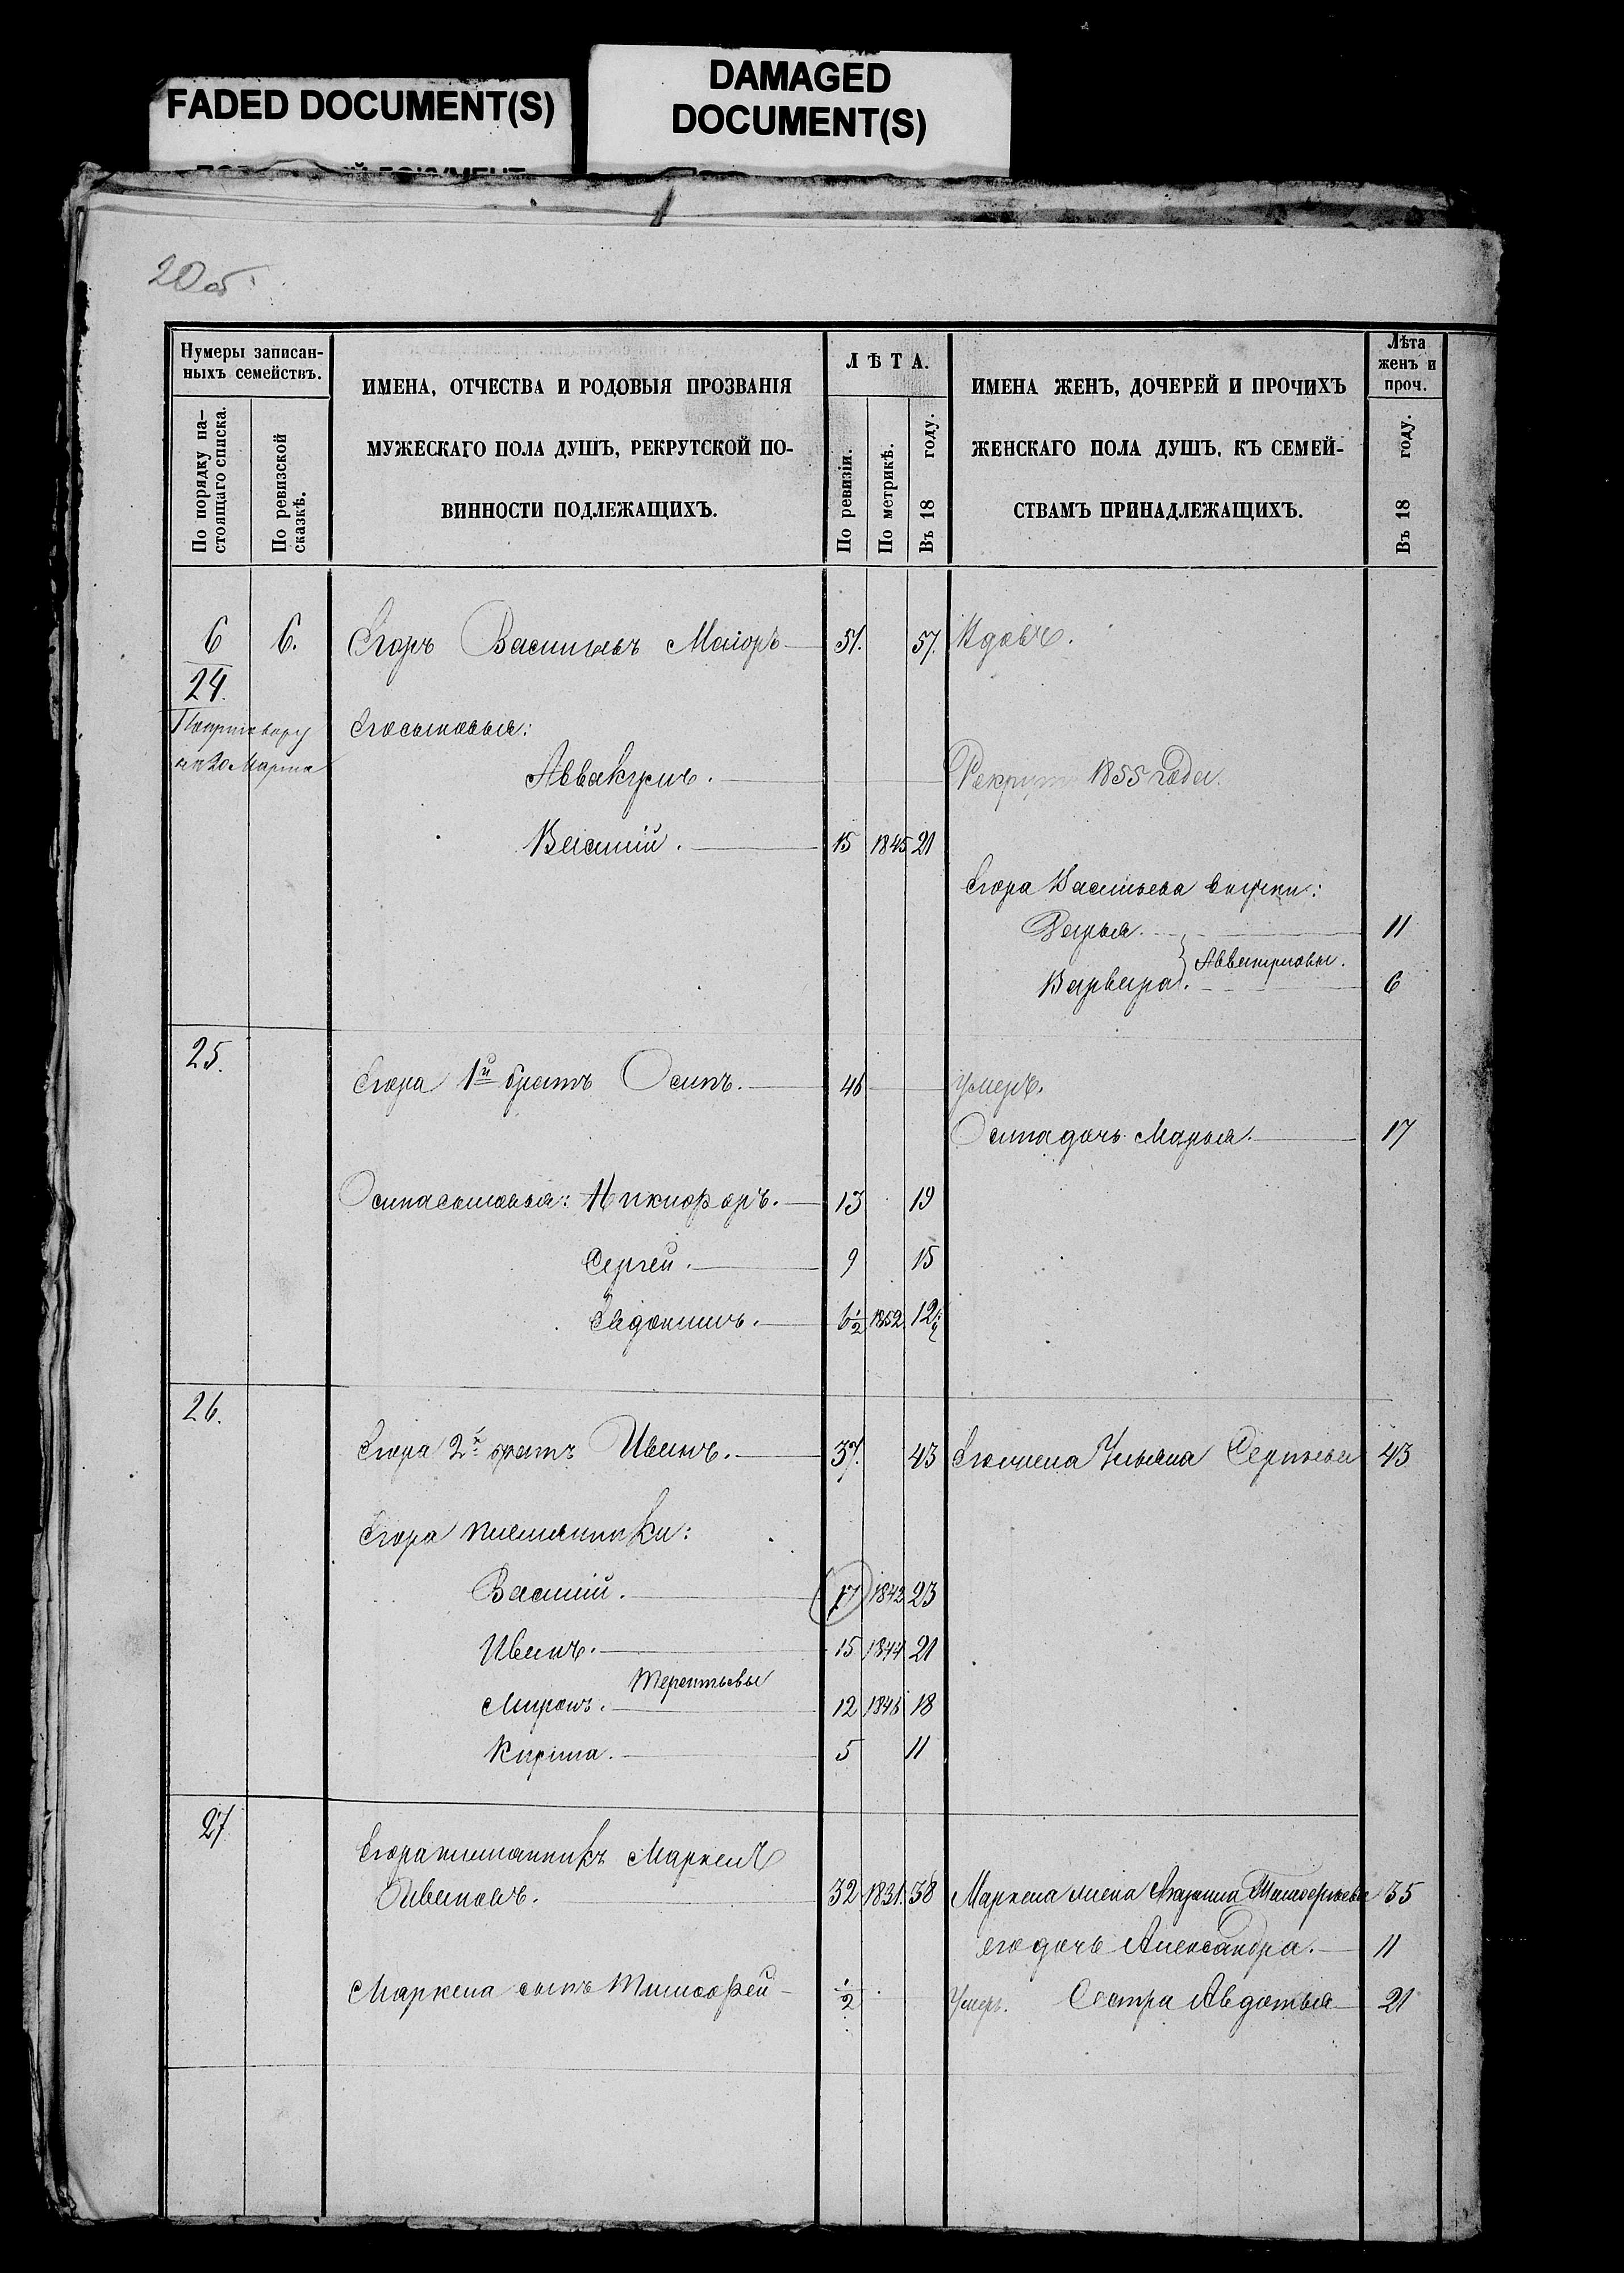 FADED DOCUMENT(S)
DAMAGED
DOCUMENT(S)
20 об.
Нумеры записан-
ныхъ семействъ.
По порядку на-
стоящаго списка.
По ревизской
сказкѣ.
ИМЕНА, ОТЧЕСТВА И РОДОВЫЯ ПРОЗВАНІЯ
МУЖЕСКАГО ПОЛА ДУШЪ, РЕКРУТСКОЙ ПО-
ВИННОСТИ ПОДЛЕЖАЩИХЪ.
ЛѢТА.
По ревизіи.
По метрикѣ.
Въ 18 году.
ИМЕНА ЖЕНЪ, ДОЧЕРЕЙ И ПРОЧИХЪ
ЖЕНСКАГО ПОЛА ДУШЪ, КЪ СЕМЕЙ-
СТВАМЪ ПРИНАДЛЕЖАЩИХЪ.
Лѣта
женъ и
проч.
Въ 18 году.
6 6. Егоръ Васильевъ Маіоръ 51. 57. Вдовъ.
24.
По приговору Его сыновья:
20 Марта
Аввакумъ. Рекрутъ 1855 года.
Василій. 15 1845 21
Егора Васильева внучки:
Дарья. 11
Аввакумовы.
Варвара. 6
25.
Егора 1й братъ Осипъ. 46 умеръ.
Осипа дочь Марья. 17
Осипа сыновья: Никифоръ. 13 19
Сергей. 9 15
Евдокимъ. 6½ 1852 12
26.
Егора 2й братъ Иванъ. 37. 43 Его жена Ульяна Сергѣева 43
Егора племянники:
Василій. 17 1842 23
Иванъ. 15 1844 21
Терентьевы
Миронъ. 12 1846 18
Кирила. 5 11
27
Егора племянникъ Маркелъ
Ивановъ. 32 1831. 38 Маркела жена Тимофеева 35
его дочь Александра. 11
Маркела сынъ Тимофей ½ Умеръ. Сестра Авдотья 21